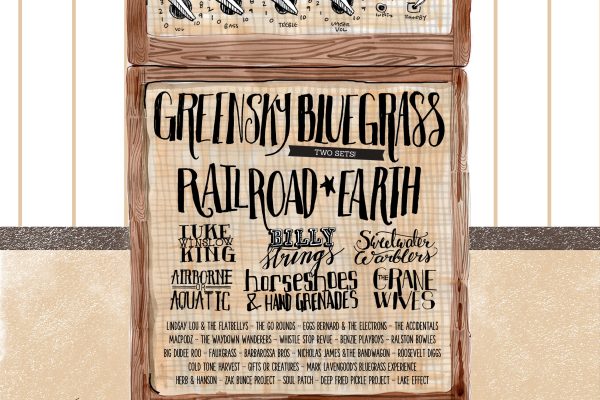 VOL BASS TREBLE
VOL
GREENSKY BLUEGRASS
TWO SETS!
RAILROAD ★ EARTH
LUKE WINSLOW KING
BILLY Strings
Sweetwater Warblers
AIRBORNE OR AQUATIC
horseshoes & HAND GRENADES
THE CRANE WIVES
LINDSAY LOU & THE FLATBELLYS - THE GO ROUNDS - EGGS BERNARD & THE ELECTRONS - THE ACCIDENTALS
MACPODZ - THE WAYDOWN WANDERERS - WHISTLE STOP REVUE - BENZIE PLAYBOYS - RALSTON BOWLES
BIG DUDEE ROO - FAUXGRASS - BARBAROSSA BROS. - NICHOLAS JAMES & THE BANDWAGON - ROOSEVELT DIGGS
COLD TONE HARVEST - GIFTS OR CREATURES - MARK LAVENGOOD'S BLUEGRASS EXPERIENCE
HERB & HANSON - ZAK BUNCE PROJECT - SOUL PATCH - DEEP FRIED PICKLE PROJECT - LAKE EFFECT